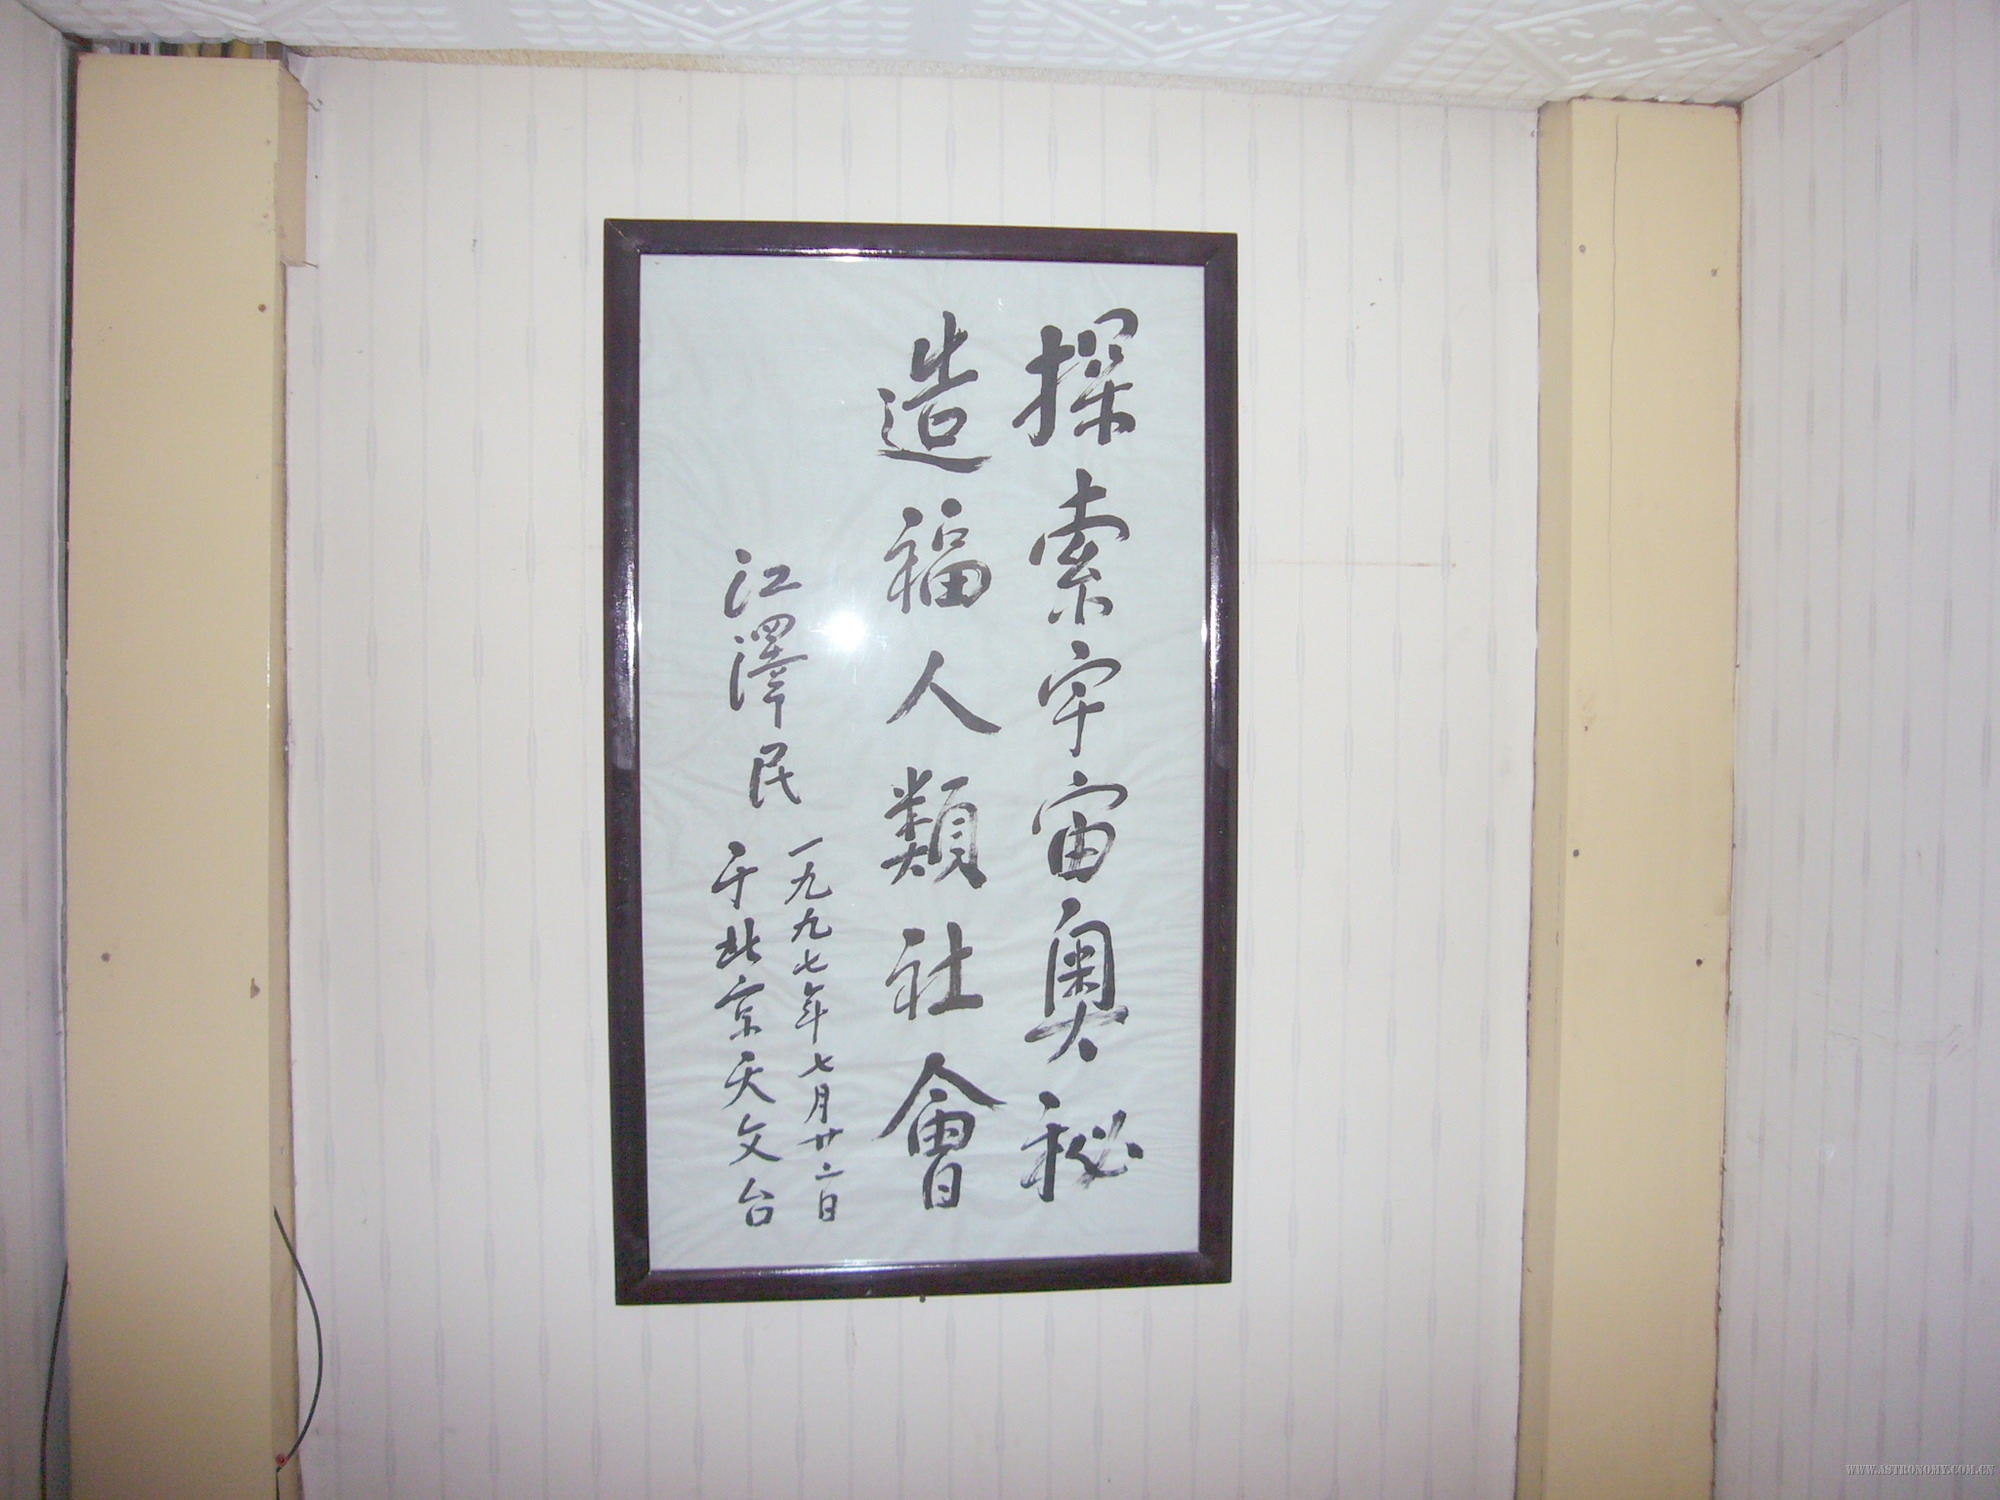 探索宇宙奥秘
造福人類社會
江澤民
一九九七年七月廿二日
于北京天文台
WWW.ASTRONOMY.COM.CN